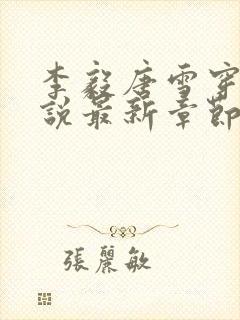 李毅唐雪穿
說最新章節
張麗敏